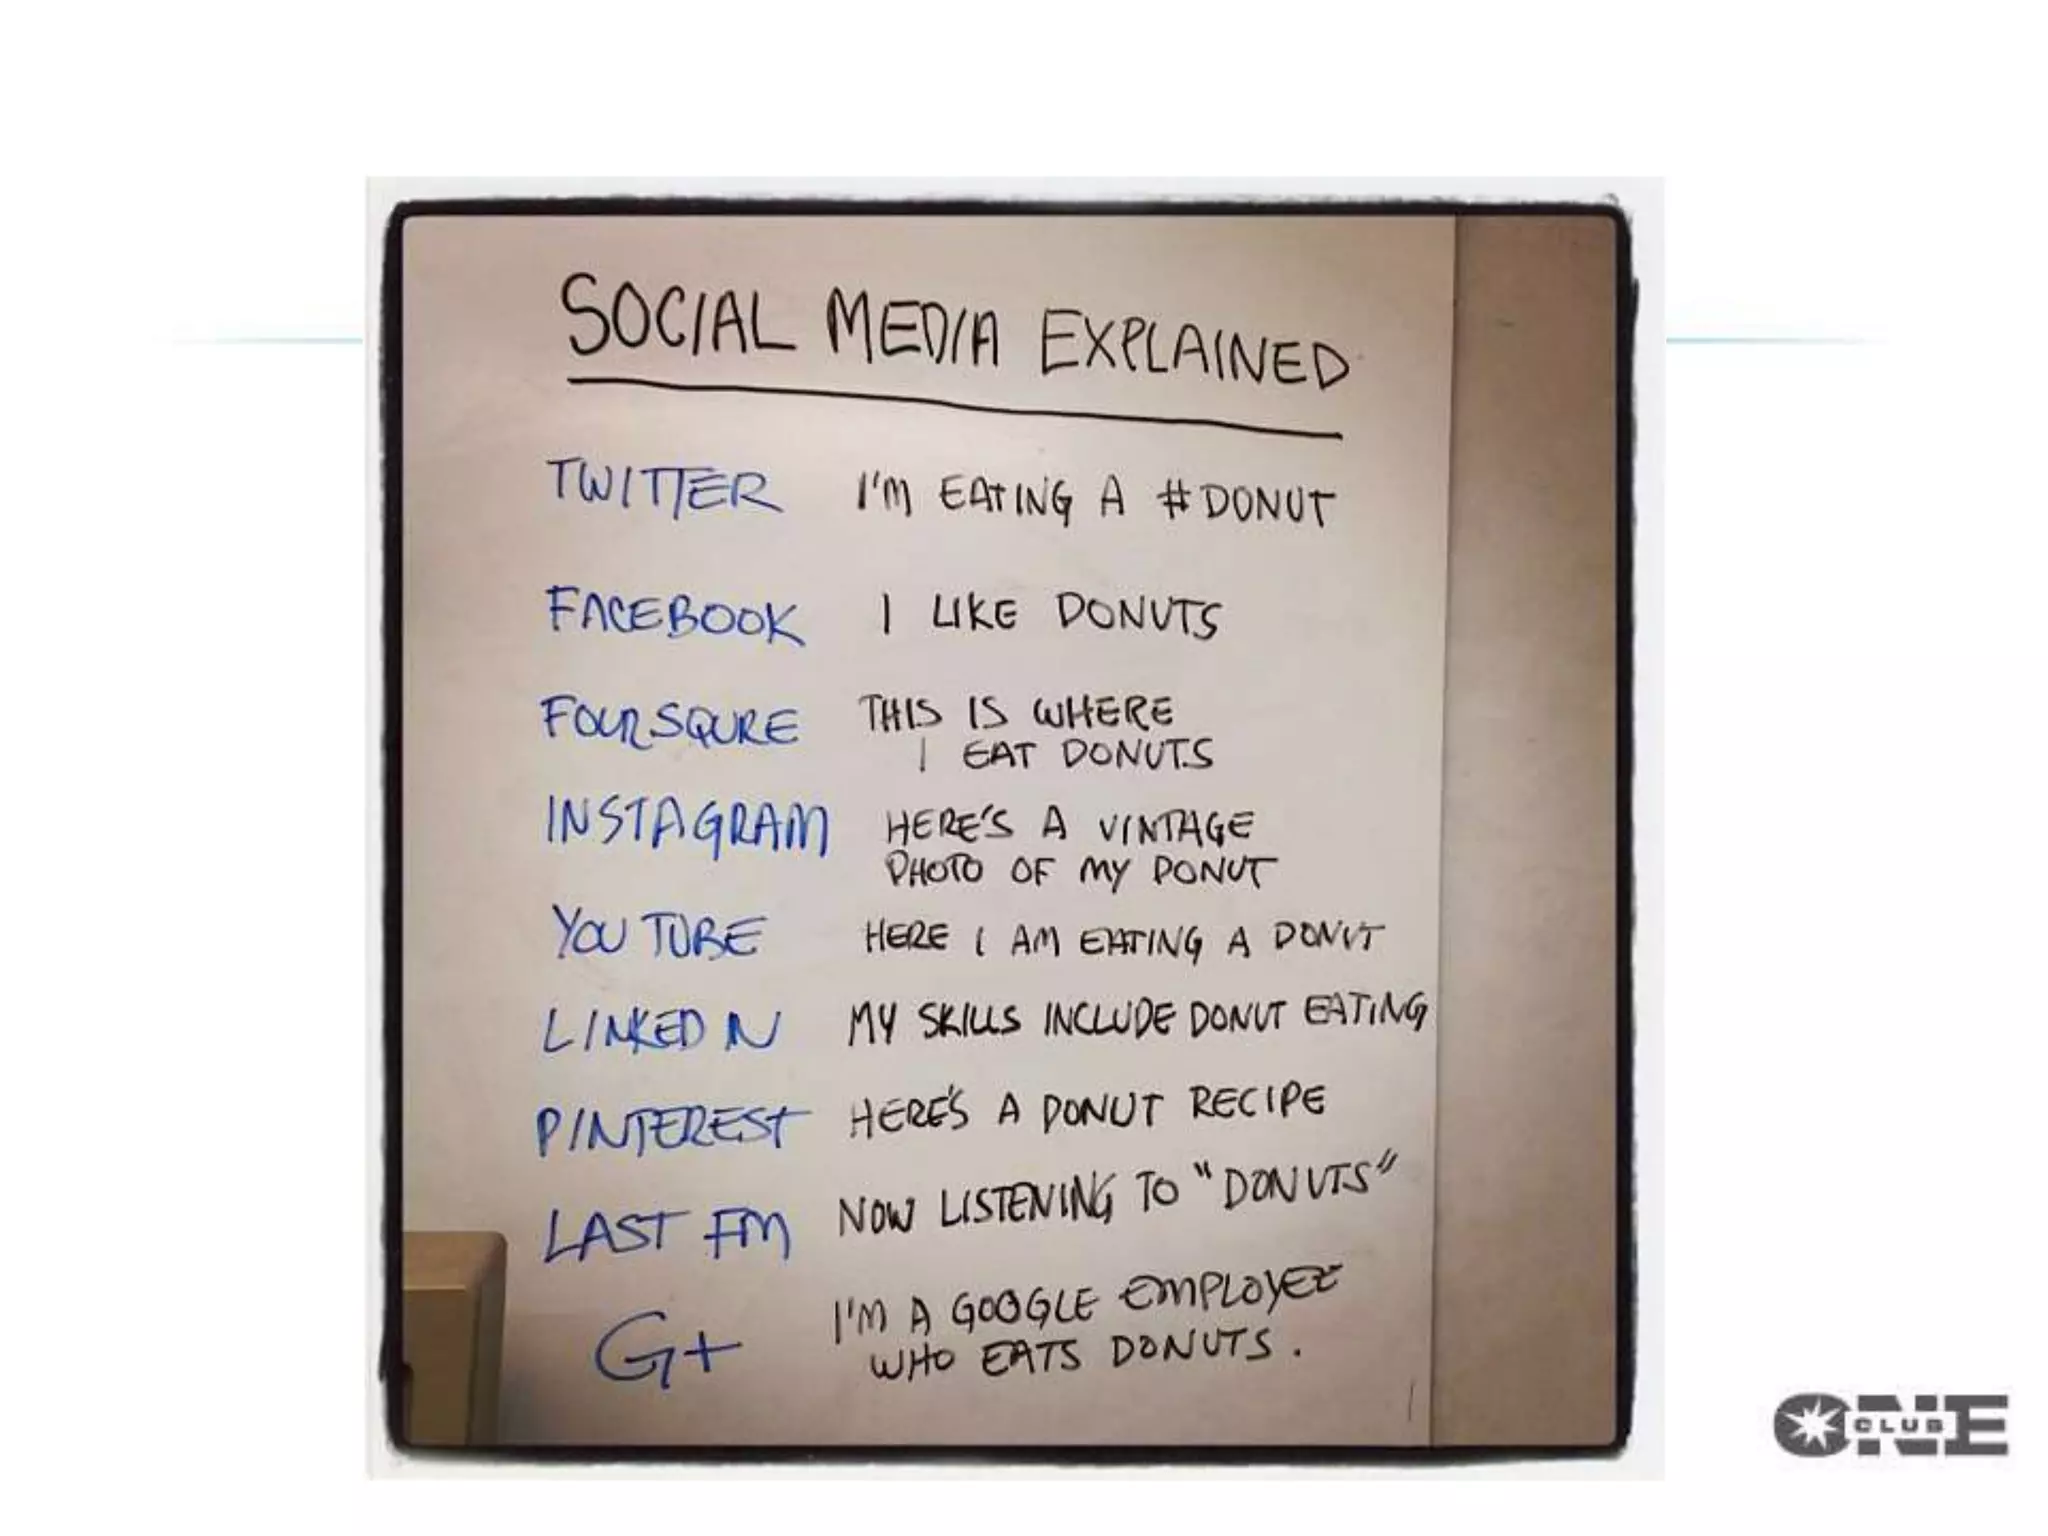 SOCIAL MEDIA EXPLAINED
TWITTER I'M EATING A #DONUT
FACEBOOK I LIKE DONUTS
FOURSQURE THIS IS WHERE
I EAT DONUTS
INSTAGRAM HERE'S A VINTAGE
PHOTO OF MY DONUT
YOU TUBE HERE I AM EATING A DONUT
LINKED IN MY SKILLS INCLUDE DONUT EATING
PINTEREST HERE'S A DONUT RECIPE
LAST FM NOW LISTENING TO "DONUTS"
G+ I'M A GOOGLE EMPLOYEE
WHO EATS DONUTS.
ONE
CLUB